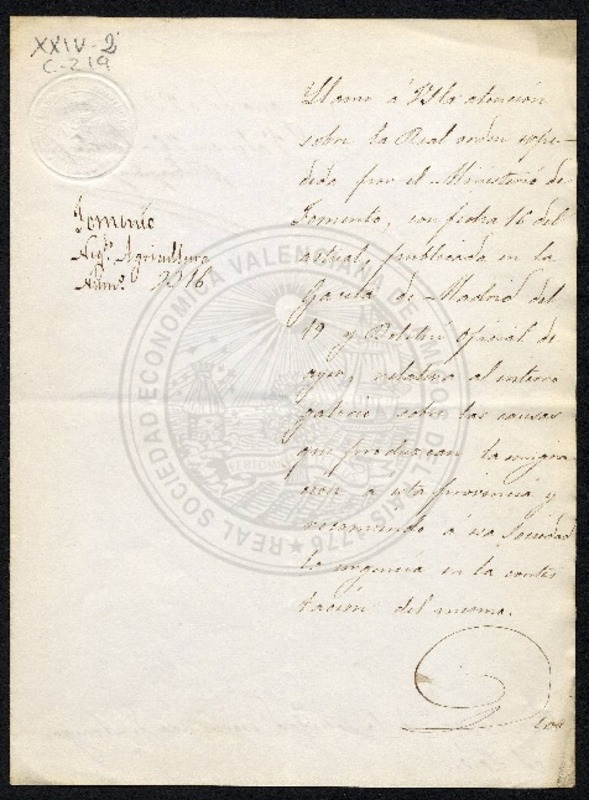 XXIV-2
C-219
Fomento
Neg.º Agricultura
Núm.º 3216
Llamo á V.S. la atención
sobre la Real orden expe-
dida por el Ministerio de
Fomento, con fecha 16 del
actual, publicada en la
Gaceta de Madrid del
19 y Boletin oficial de
ayer, relativa al interro
gatorio sobre las causas
que produzcan la emigra
cion a esta provincia y
recomiendo á esa Sociedad
la urgencia en la contes
tación del mismo.
REAL SOCIEDAD ECONOMICA VALENCIANA DE AMIGOS DEL PAIS 1776